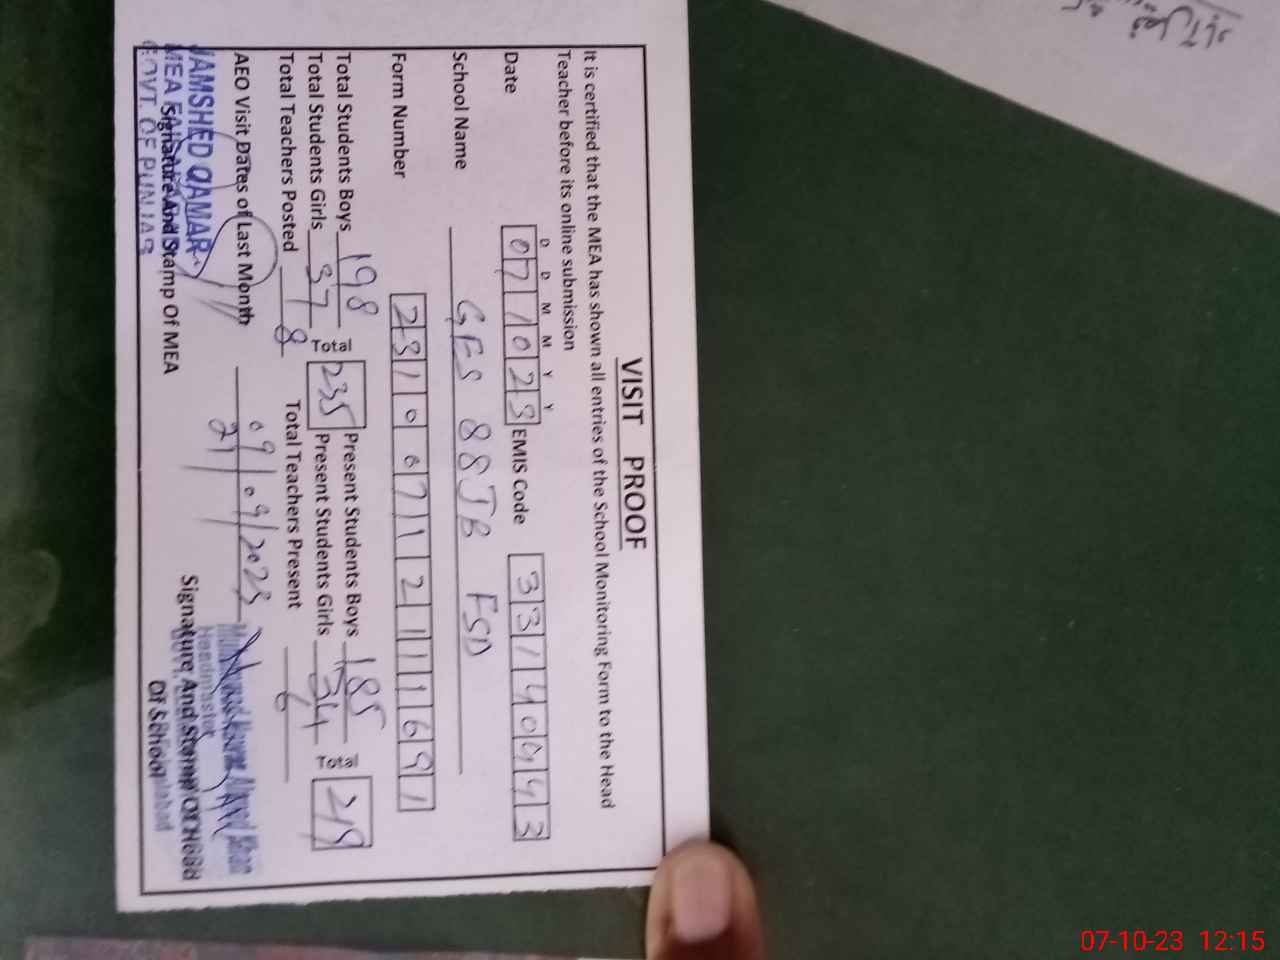 VISIT PROOF
It is certified that the MEA has shown all entries of the School Monitoring Form to the Head
Teacher before its online submission
D D M M Y Y
Date 071023 EMIS Code 33140443
School Name GES 88JB FSD
Form Number 23100712111691
Total Students Boys 198 Total 235 Present Students Boys 185 Total 219
Total Students Girls 37 Present Students Girls 34
Total Teachers Posted 8 Total Teachers Present 6
AEO Visit Dates of Last Month 09/09/2023
21
JAMSHED QAMAR
MEA
Signature And Stamp Of MEA
GOVT. OF PUNJAB
Headmaster
Signature And Stamp Of Head
Of School
07-10-23 12:15